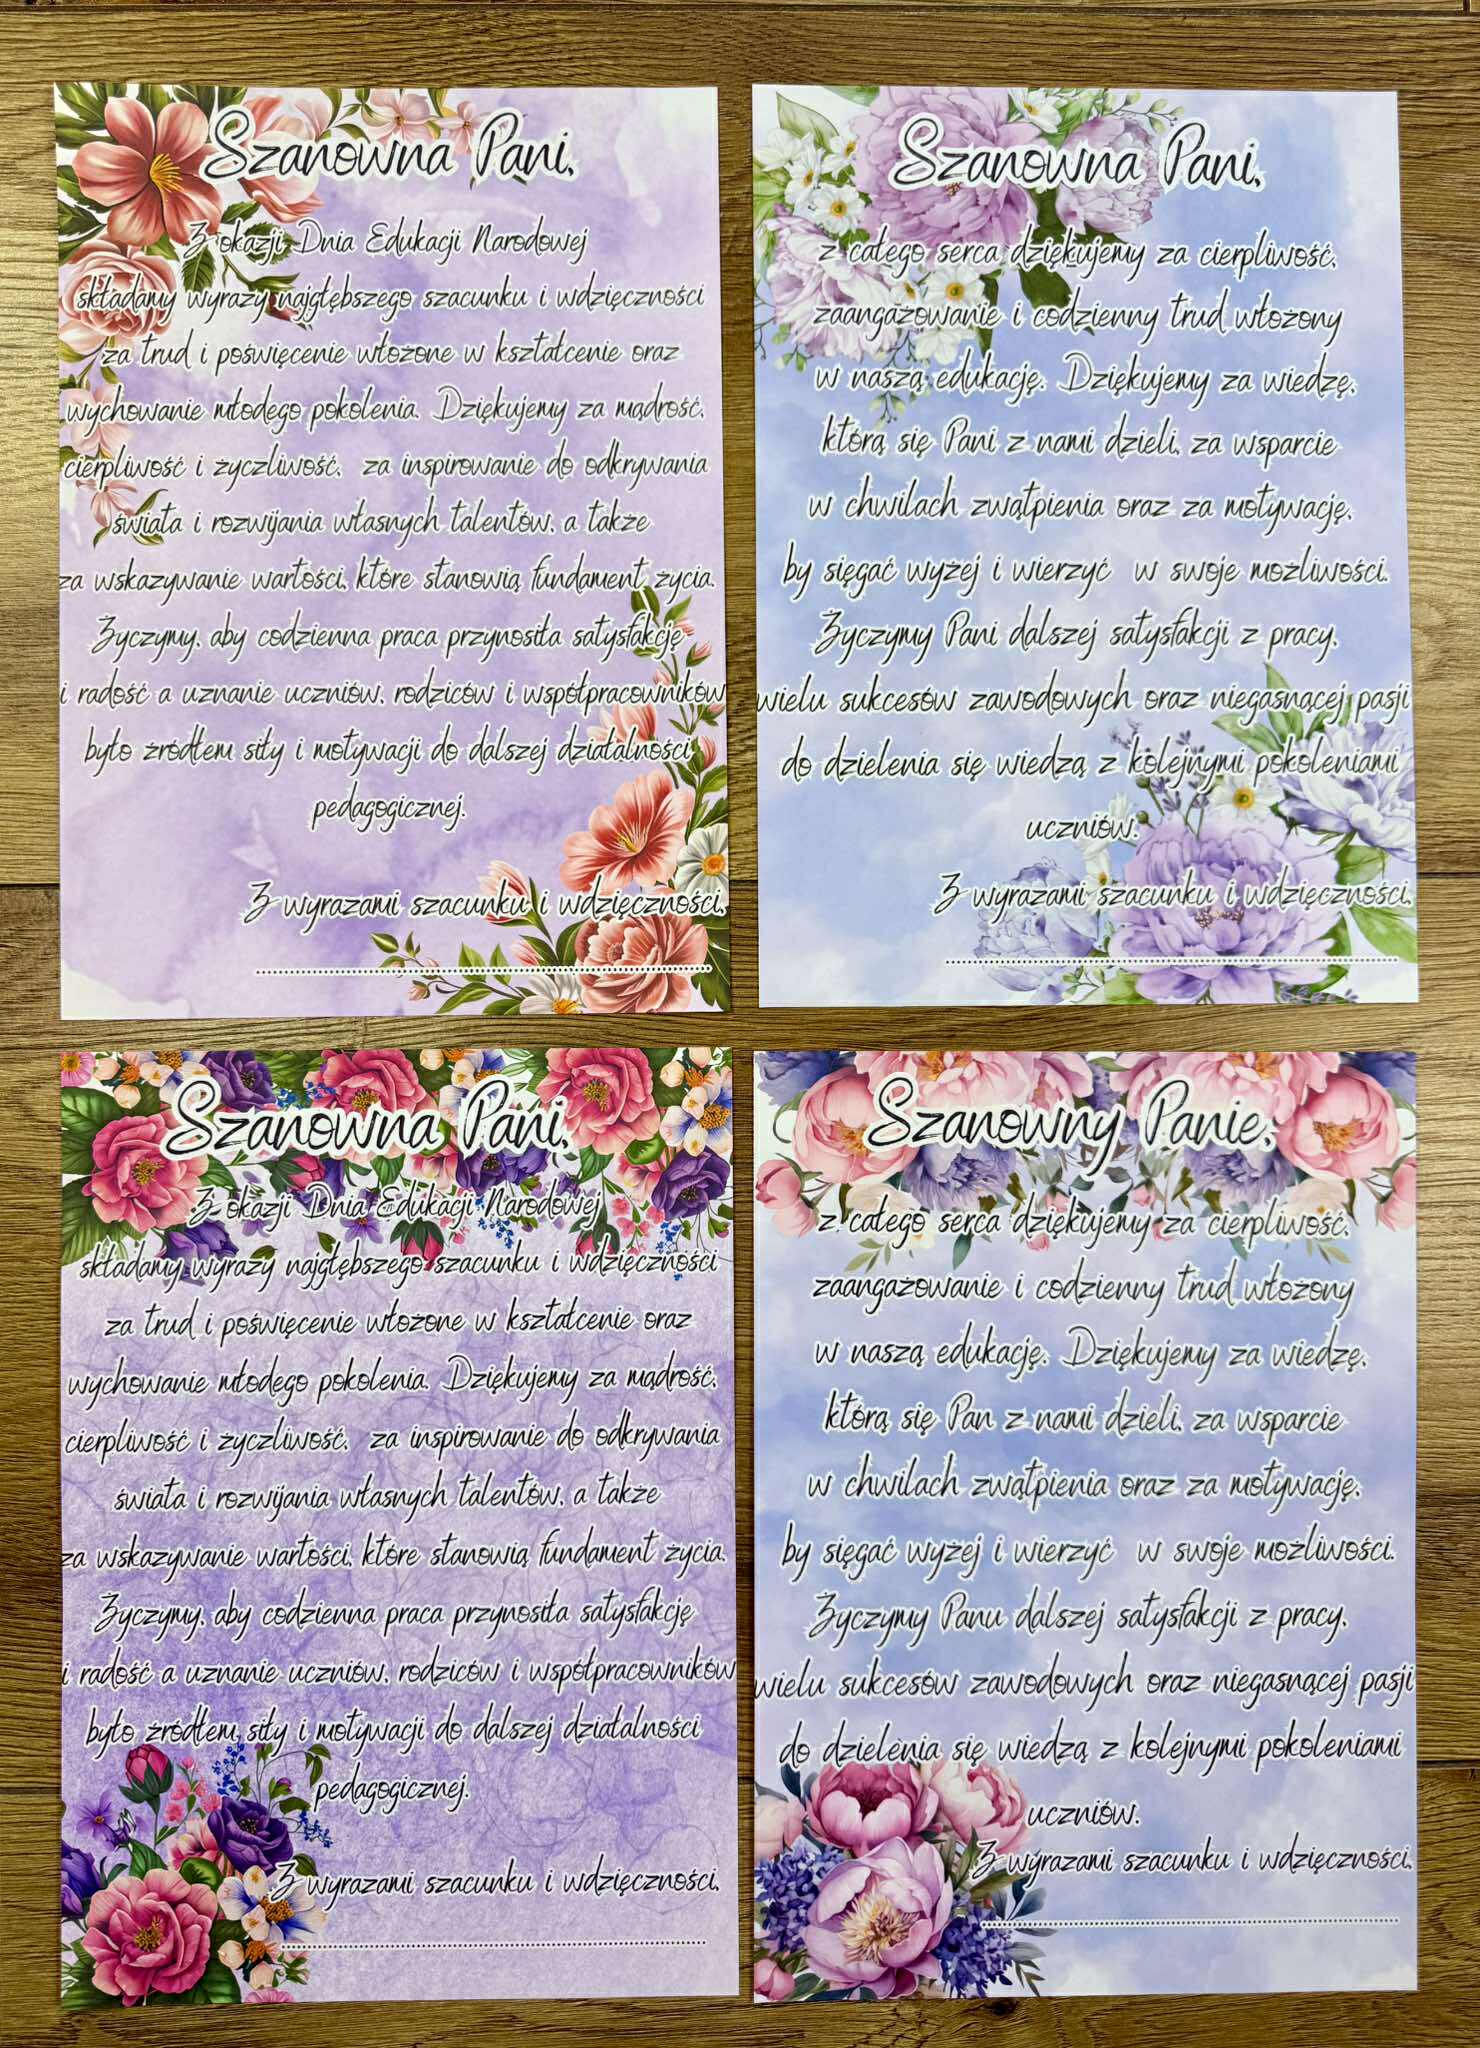 Szanowna Pani,
Z okazji Dnia Edukacji Narodowej
składamy wyrazy najgłębszego szacunku i wdzięczności
za trud i poświęcenie włożone w kształcenie oraz
wychowanie młodego pokolenia. Dziękujemy za mądrość,
cierpliwość i życzliwość, za inspirowanie do odkrywania
świata i rozwijania własnych talentów, a także
za wskazywanie wartości, które stanowią fundament życia.
Życzymy, aby codzienna praca przynosiła satysfakcję
i radość a uznanie uczniów, rodziców i współpracowników
było źródłem siły i motywacji do dalszej działalności
pedagogicznej.
Z wyrazami szacunku i wdzięczności,
Szanowna Pani,
z całego serca dziękujemy za cierpliwość,
zaangażowanie i codzienny trud włożony
w naszą edukację. Dziękujemy za wiedzę,
którą się Pani z nami dzieli, za wsparcie
w chwilach zwątpienia oraz za motywację,
by sięgać wyżej i wierzyć w swoje możliwości.
Życzymy Pani dalszej satysfakcji z pracy,
wielu sukcesów zawodowych oraz niegasnącej pasji
do dzielenia się wiedzą z kolejnymi pokoleniami
uczniów.
Z wyrazami szacunku i wdzięczności,
Szanowna Pani,
Z okazji Dnia Edukacji Narodowej
składamy wyrazy najgłębszego szacunku i wdzięczności
za trud i poświęcenie włożone w kształcenie oraz
wychowanie młodego pokolenia. Dziękujemy za mądrość,
cierpliwość i życzliwość, za inspirowanie do odkrywania
świata i rozwijania własnych talentów, a także
za wskazywanie wartości, które stanowią fundament życia.
Życzymy, aby codzienna praca przynosiła satysfakcję
i radość a uznanie uczniów, rodziców i współpracowników
było źródłem siły i motywacji do dalszej działalności
pedagogicznej.
Z wyrazami szacunku i wdzięczności,
Szanowny Panie,
z całego serca dziękujemy za cierpliwość,
zaangażowanie i codzienny trud włożony
w naszą edukację. Dziękujemy za wiedzę,
którą się Pan z nami dzieli, za wsparcie
w chwilach zwątpienia oraz za motywację,
by sięgać wyżej i wierzyć w swoje możliwości.
Życzymy Panu dalszej satysfakcji z pracy,
wielu sukcesów zawodowych oraz niegasnącej pasji
do dzielenia się wiedzą z kolejnymi pokoleniami
uczniów.
Z wyrazami szacunku i wdzięczności,